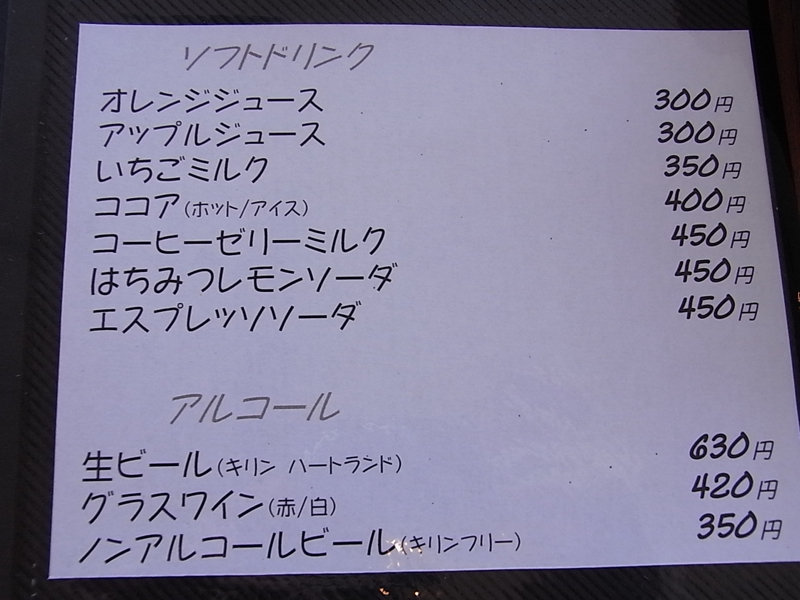 ソフトドリンク
オレンジジュース 300円
アップルジュース 300円
いちごミルク 350円
ココア(ホット/アイス) 400円
コーヒーゼリーミルク 450円
はちみつレモンソーダ 450円
エスプレッソソーダ 450円
アルコール
生ビール(キリン ハートランド) 630円
グラスワイン(赤/白) 420円
ノンアルコールビール(キリンフリー) 350円